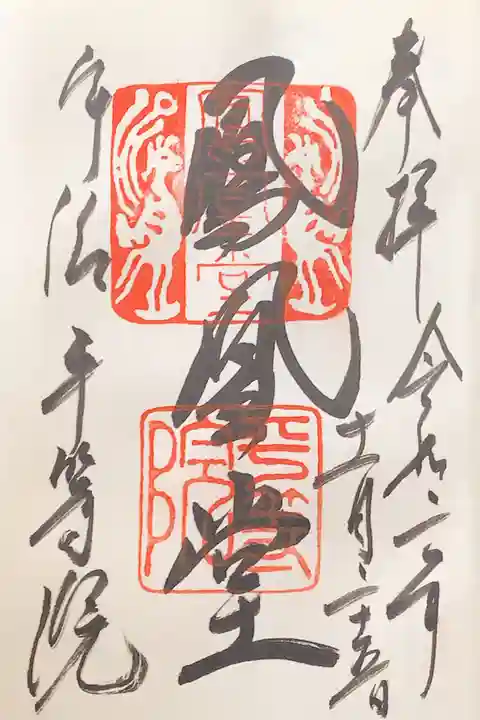 奉拝 令和二年
十一月二十五日
鳳凰堂
宇治 平等院
鳳凰堂
平等院